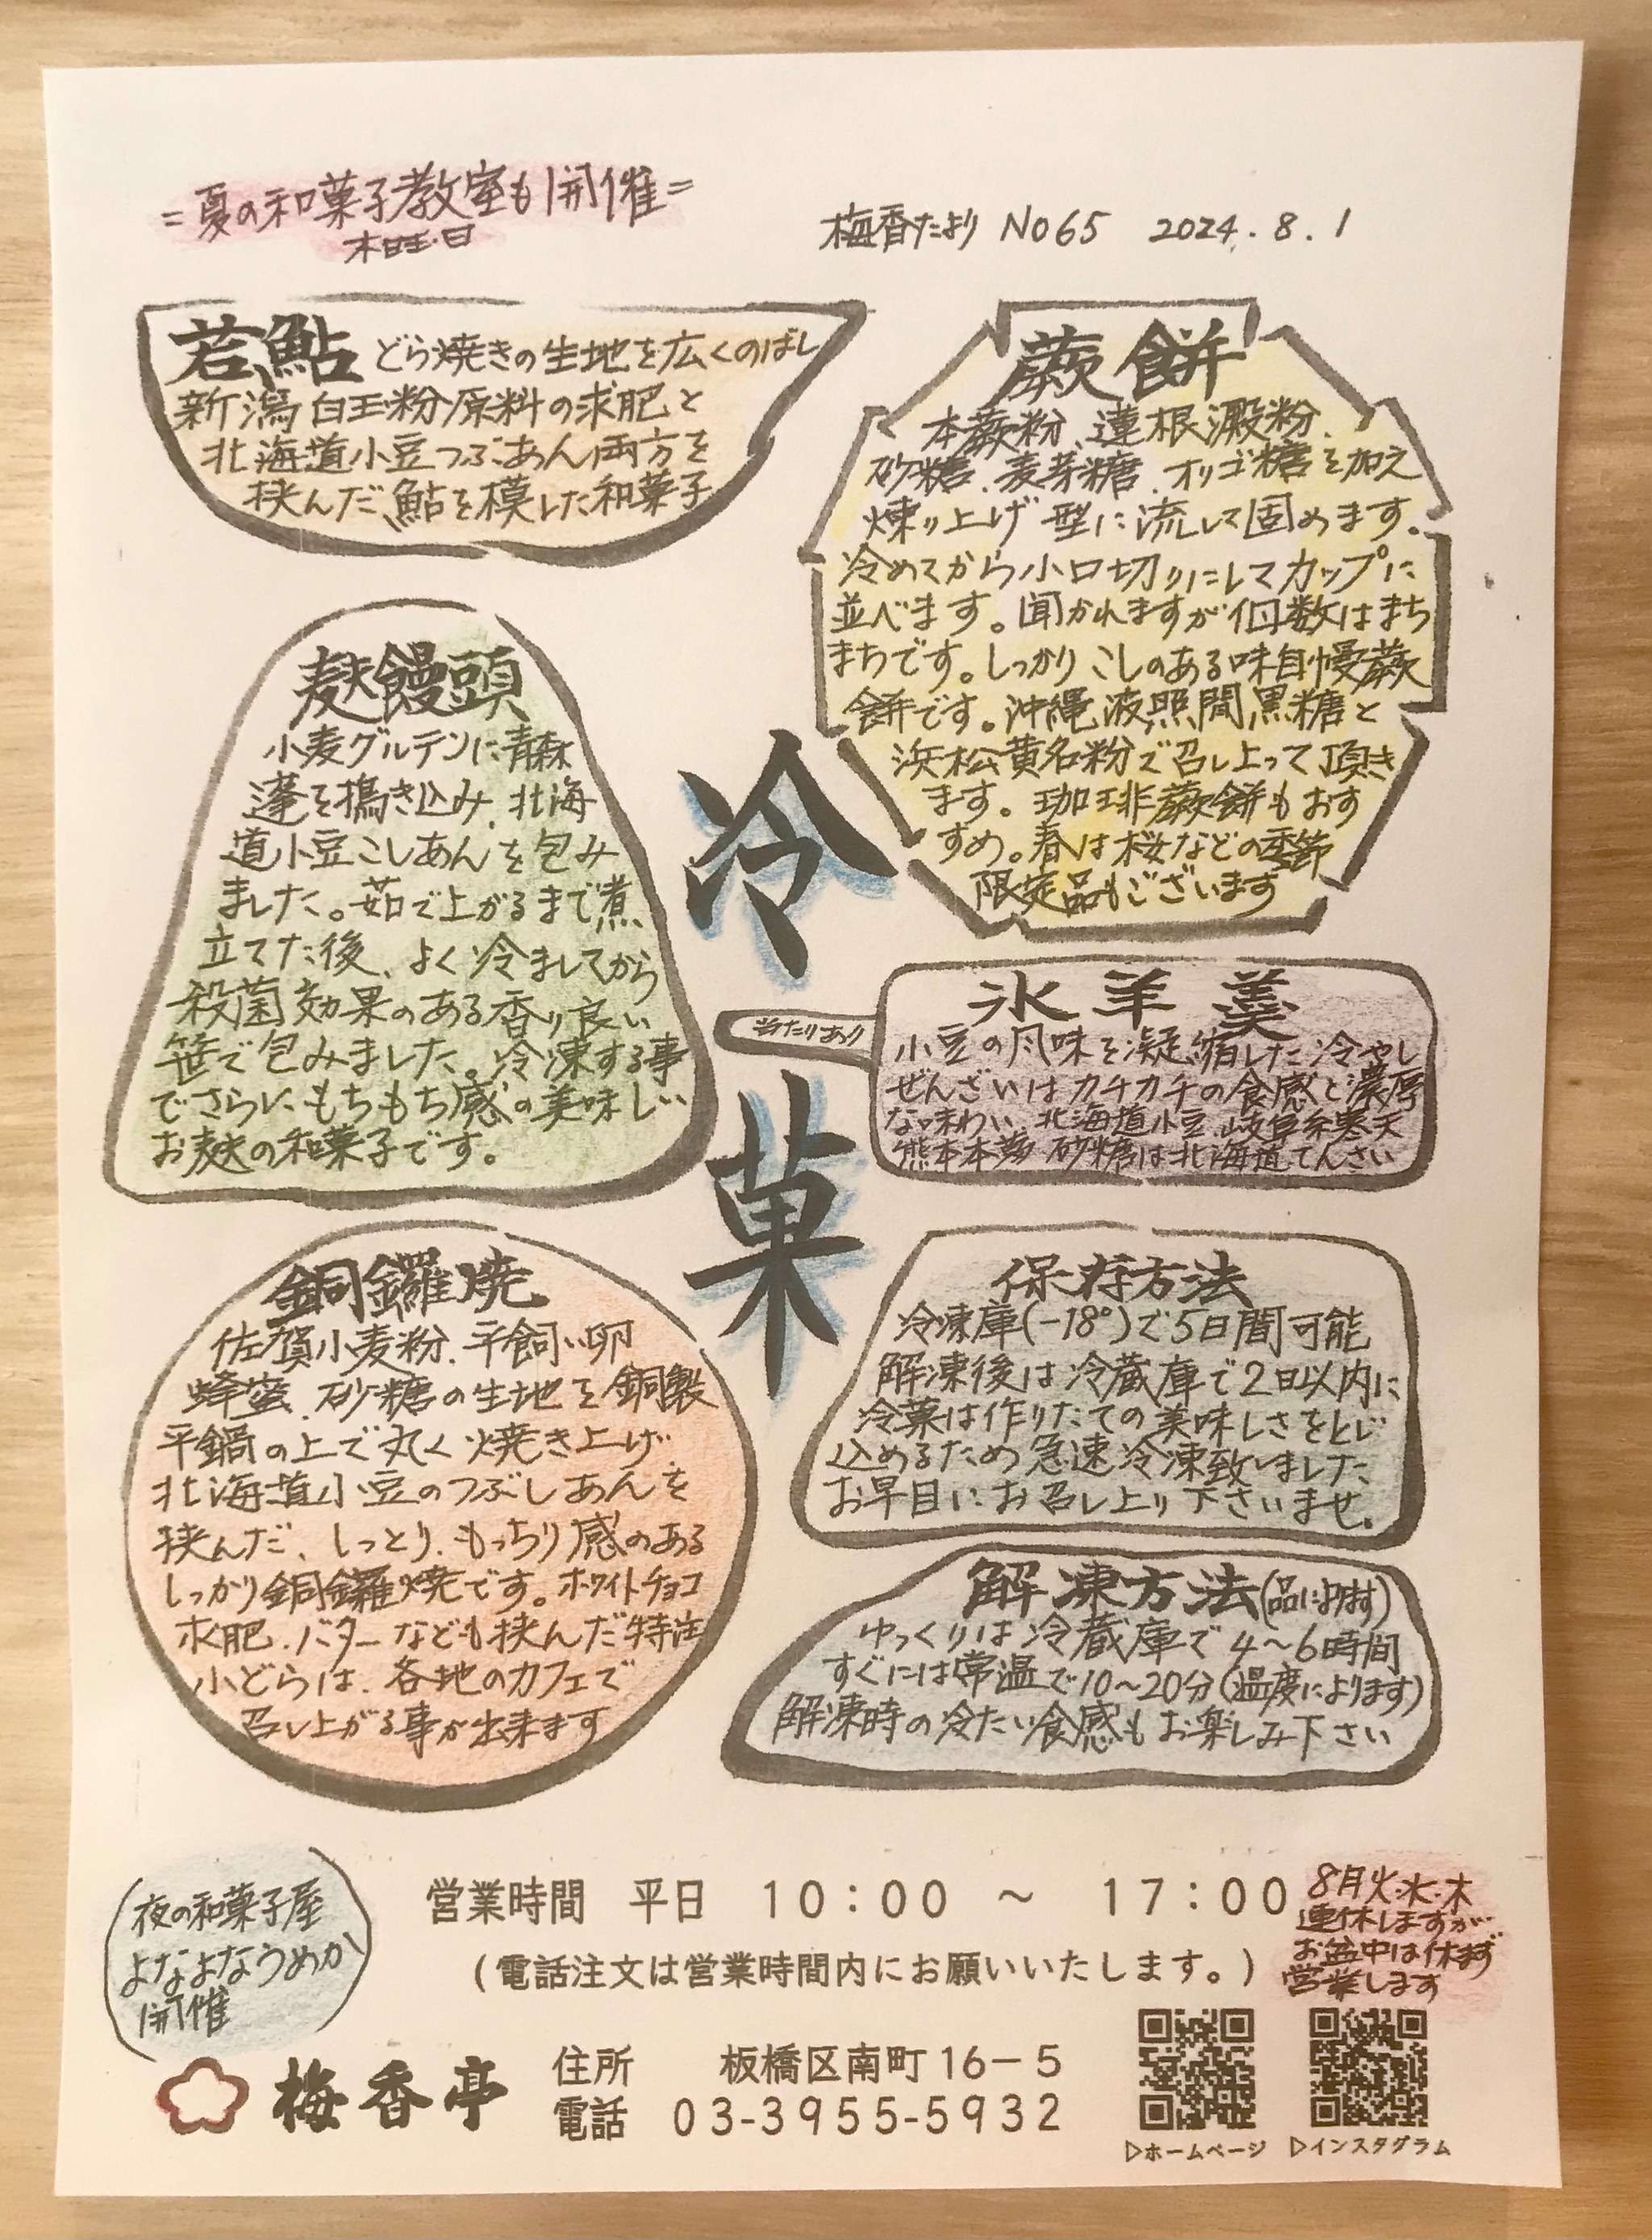 =夏の和菓子教室も開催=
木曜・日
梅香たより No65 2024.8.1
若鮎 どら焼きの生地を広くのばし
新潟白玉粉原料の求肥と
北海道小豆つぶあん両方を
挟んだ、鮎を模した和菓子
蕨餅
本蕨粉、蓮根澱粉、
砂糖、麦芽糖、オリゴ糖を加え
煉り上げ型に流して固めます。
冷めてから小口切りにしてカップに
並べます。聞かれますが個数はまち
まちです。しっかりこしのある味自慢蕨
餅です。沖縄波照間黒糖と
浜松黄名粉で召し上って頂き
ます。珈琲蕨餅もおす
すめ。春は桜などの季節
限定品もございます
麩饅頭
小麦グルテンに青森
蓬を搗き込み、北海
道小豆こしあんを包み
ました。茹で上がるまで煮
立てた後、よく冷ましてから
殺菌効果のある香り良い
笹で包みました。冷凍する事
でさらにもちもち感の美味しい
お麩の和菓子です。
冷菓
当たりあり
氷羊羹
小豆の風味を凝縮した冷やし
ぜんざいはカチカチの食感と濃厚
な味わい、北海道小豆、岐阜糸寒天
熊本本葛 砂糖は北海道てんさい
銅鑼焼
佐賀小麦粉、平飼い卵
蜂蜜、砂糖の生地を銅製
平鍋の上で丸く焼き上げ
北海道小豆のつぶしあんを
挟んだ、しっとり、もっちり感のある
しっかり銅鑼焼です。ホワイトチョコ
求肥、バターなども挟んだ特注
小どらは、各地のカフェで
召し上がる事が出来ます
保存方法
冷凍庫(-18°)で5日間可能
解凍後は冷蔵庫で2日以内に
冷菓は作りたての美味しさをとじ
込めるため急速冷凍致しました
お早目にお召し上り下さいませ。
解凍方法(品によります)
ゆっくりは冷蔵庫で4〜6時間
すぐには常温で10〜20分(温度によります)
解凍時の冷たい食感もお楽しみ下さい
夜の和菓子屋
よなよなうめか
開催
営業時間 平日 10:00 〜 17:00
(電話注文は営業時間内にお願いいたします。)
8月火・水・木
連休しますが
お盆中は休まず
営業します
梅香亭
住所 板橋区南町16-5
電話 03-3955-5932
▷ホームページ ▷インスタグラム